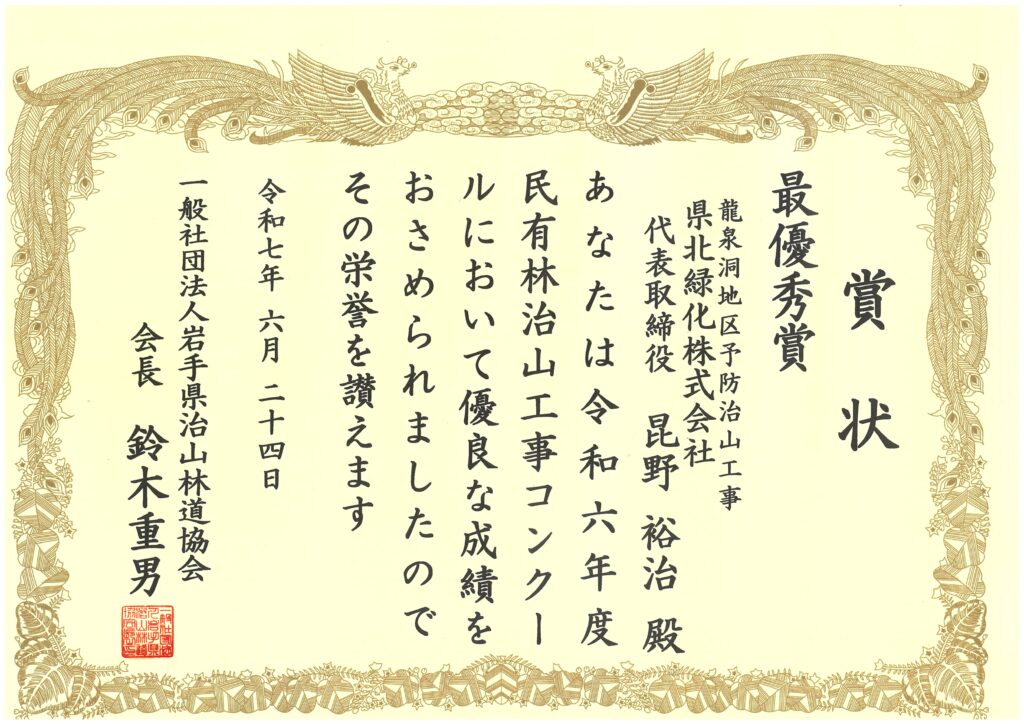 賞状
最優秀賞
龍泉洞地区予防治山工事
県北緑化株式会社
代表取締役 昆野 裕治 殿
あなたは令和六年度
民有林治山工事コンクー
ルにおいて優良な成績を
おさめられましたので
その栄誉を讃えます
令和七年 六月 二十四日
一般社団法人岩手県治山林道協会
会長 鈴木重男